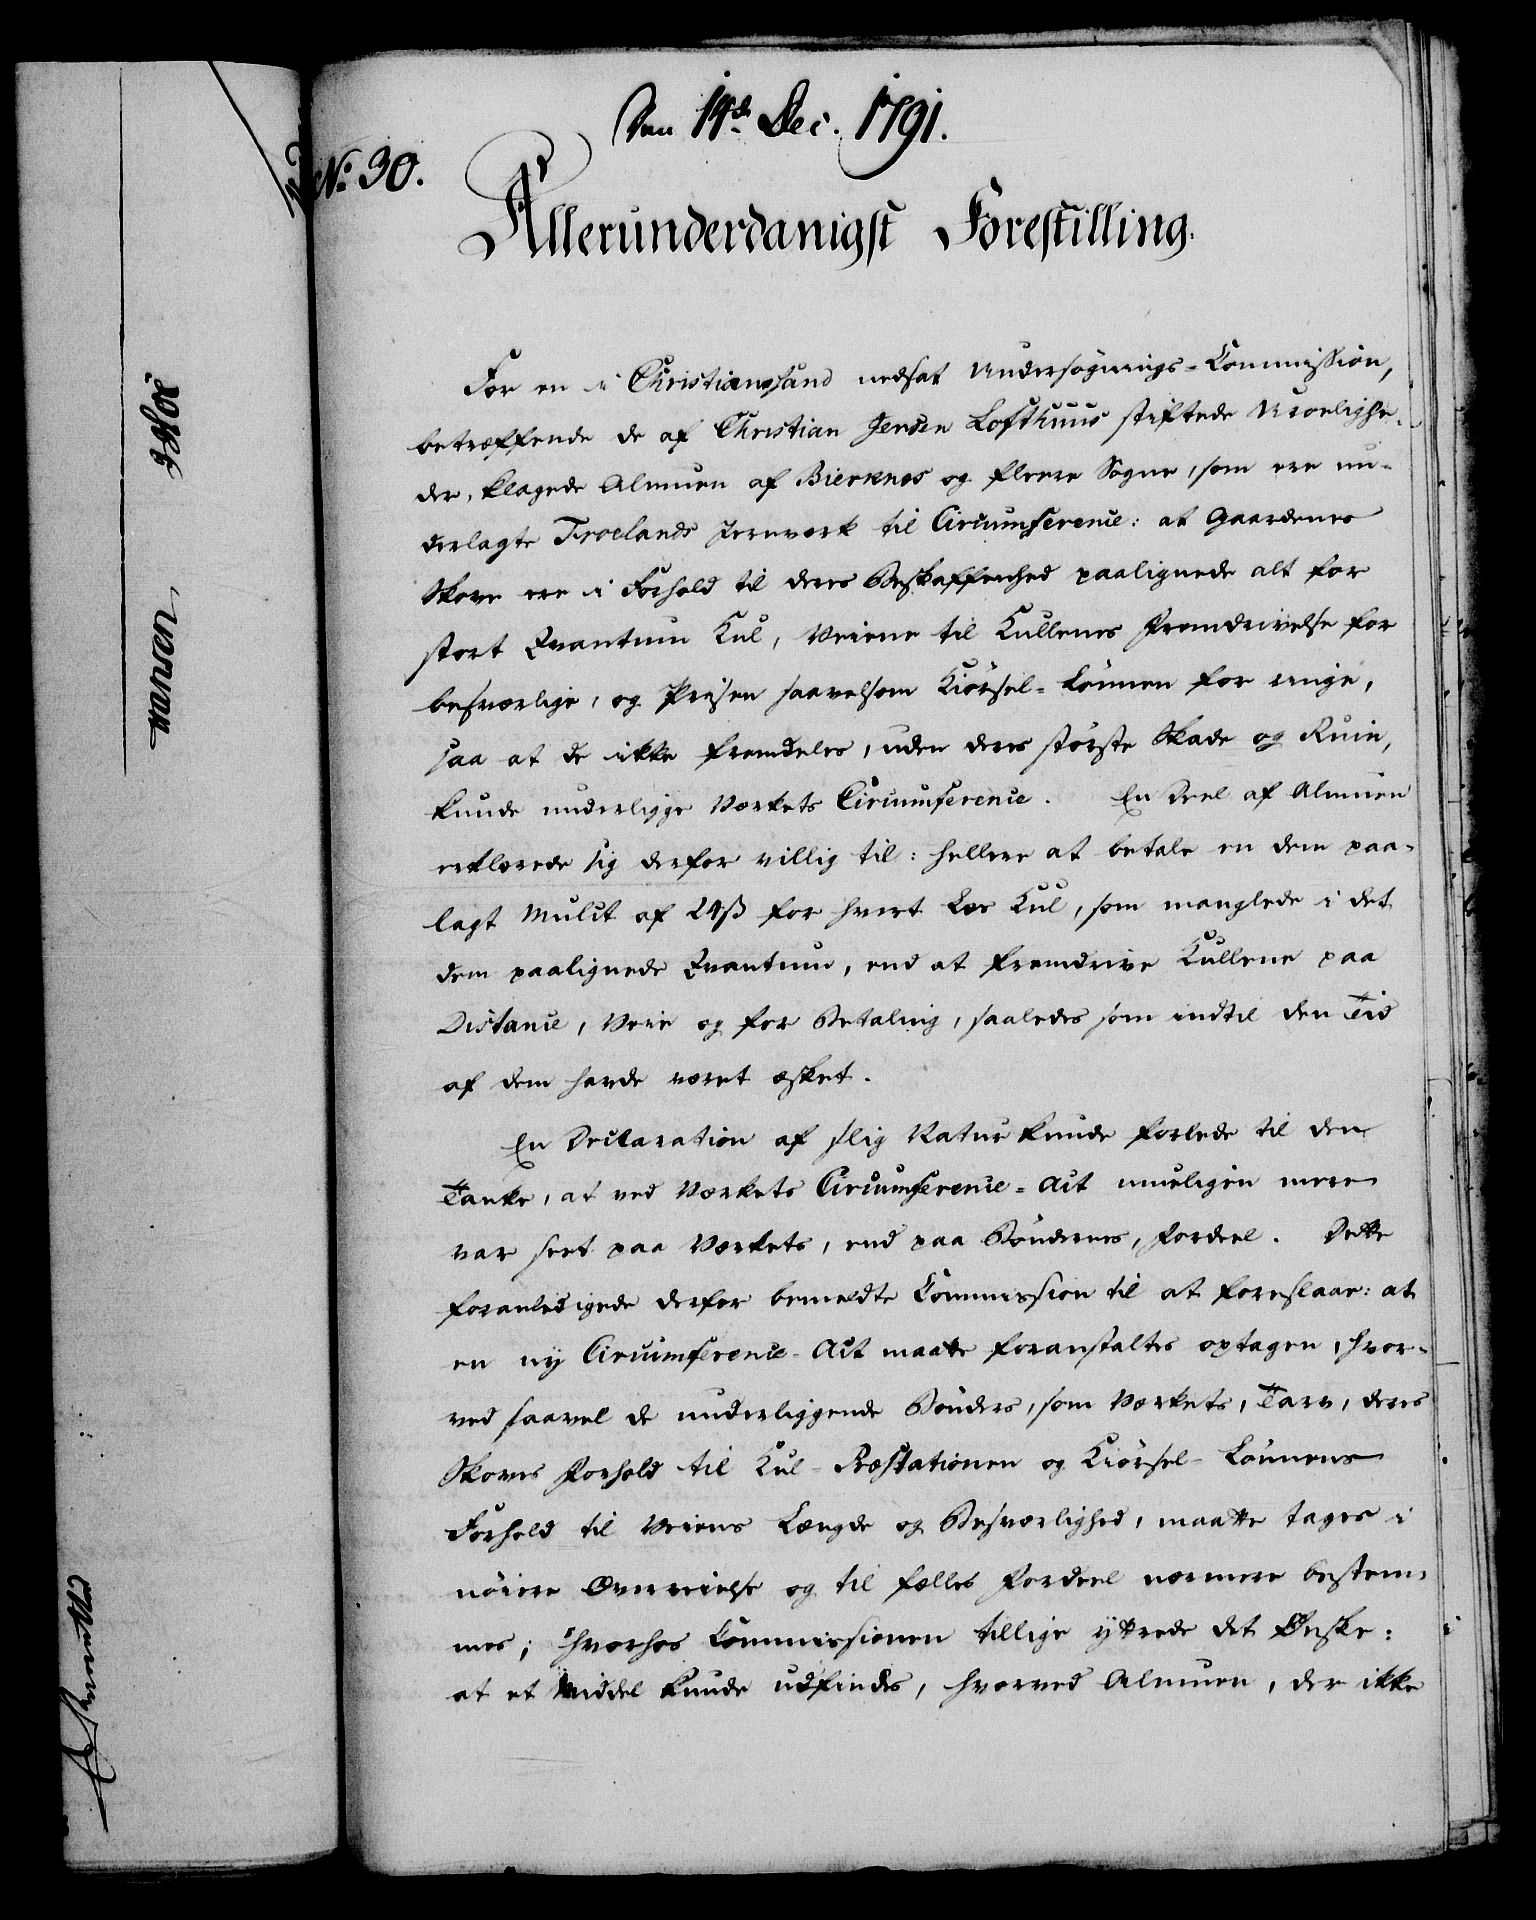 Den 14de Dec. 1791.
No 30.
Allerunderdanigst Forestilling.
For en i Christianssand nedsat Undersøgnings-Commission,
betræffende de af Christian Jensen Lofthuus stiftede Uroelighe-
der, klagede Almuen af Bierknes og fleere Sogne, som ere un-
derlagte Froelands Jernværk til Circumference: at Gaardenes
Skove ere i Forhold til deres Beskaffenhed paalignede alt for
stort Qvantum Kul, Veiene til Kullenes Fremdrivelse for
besværlige, og Prisen saavelsom Kiørsel-Lønnen for ringe,
saa at de ikke fremdeles, uden deres største Skade og Ruin,
kunde underligge Værkets Circumference. En Deel af Almuen
erklærede sig derfor villig til: hellere at betale en dem paa-
lagt Mulct af 24ß for hvert Læs Kul, som manglede i det
dem paalignede Qvantum, end at fremdrive Kullene paa
Distance, Veie og for Betaling, saaledes som indtil den Tid
af dem havde været æsket.
En Declaration af slig Natur kunde forlede til den
Tanke, at ved Værkets Circumference-Act mueligen mere
var seet paa Værkets, end paa Bøndernes, Fordeel. Dette
foranledigede derfor bemeldte Commission til at foreslaae: at
en ny Circumference-Act maatte foranstaltes optagen, hvor-
ved saavel de underliggende Bønders, som Værkets, Tarv, deres
Skoves Forhold til Kul-Præstationen og Kiørsel-Lønnens
Forhold til Veiens Længde og Besværlighed, maatte tages i
nøiere Overveielse og til fælles Fordeel nærmere bestem-
mes; hvorhos Commissionen tillige yttrede det Ønske:
at et Middel kunde udfindes, hvorved Almuen, der ikke